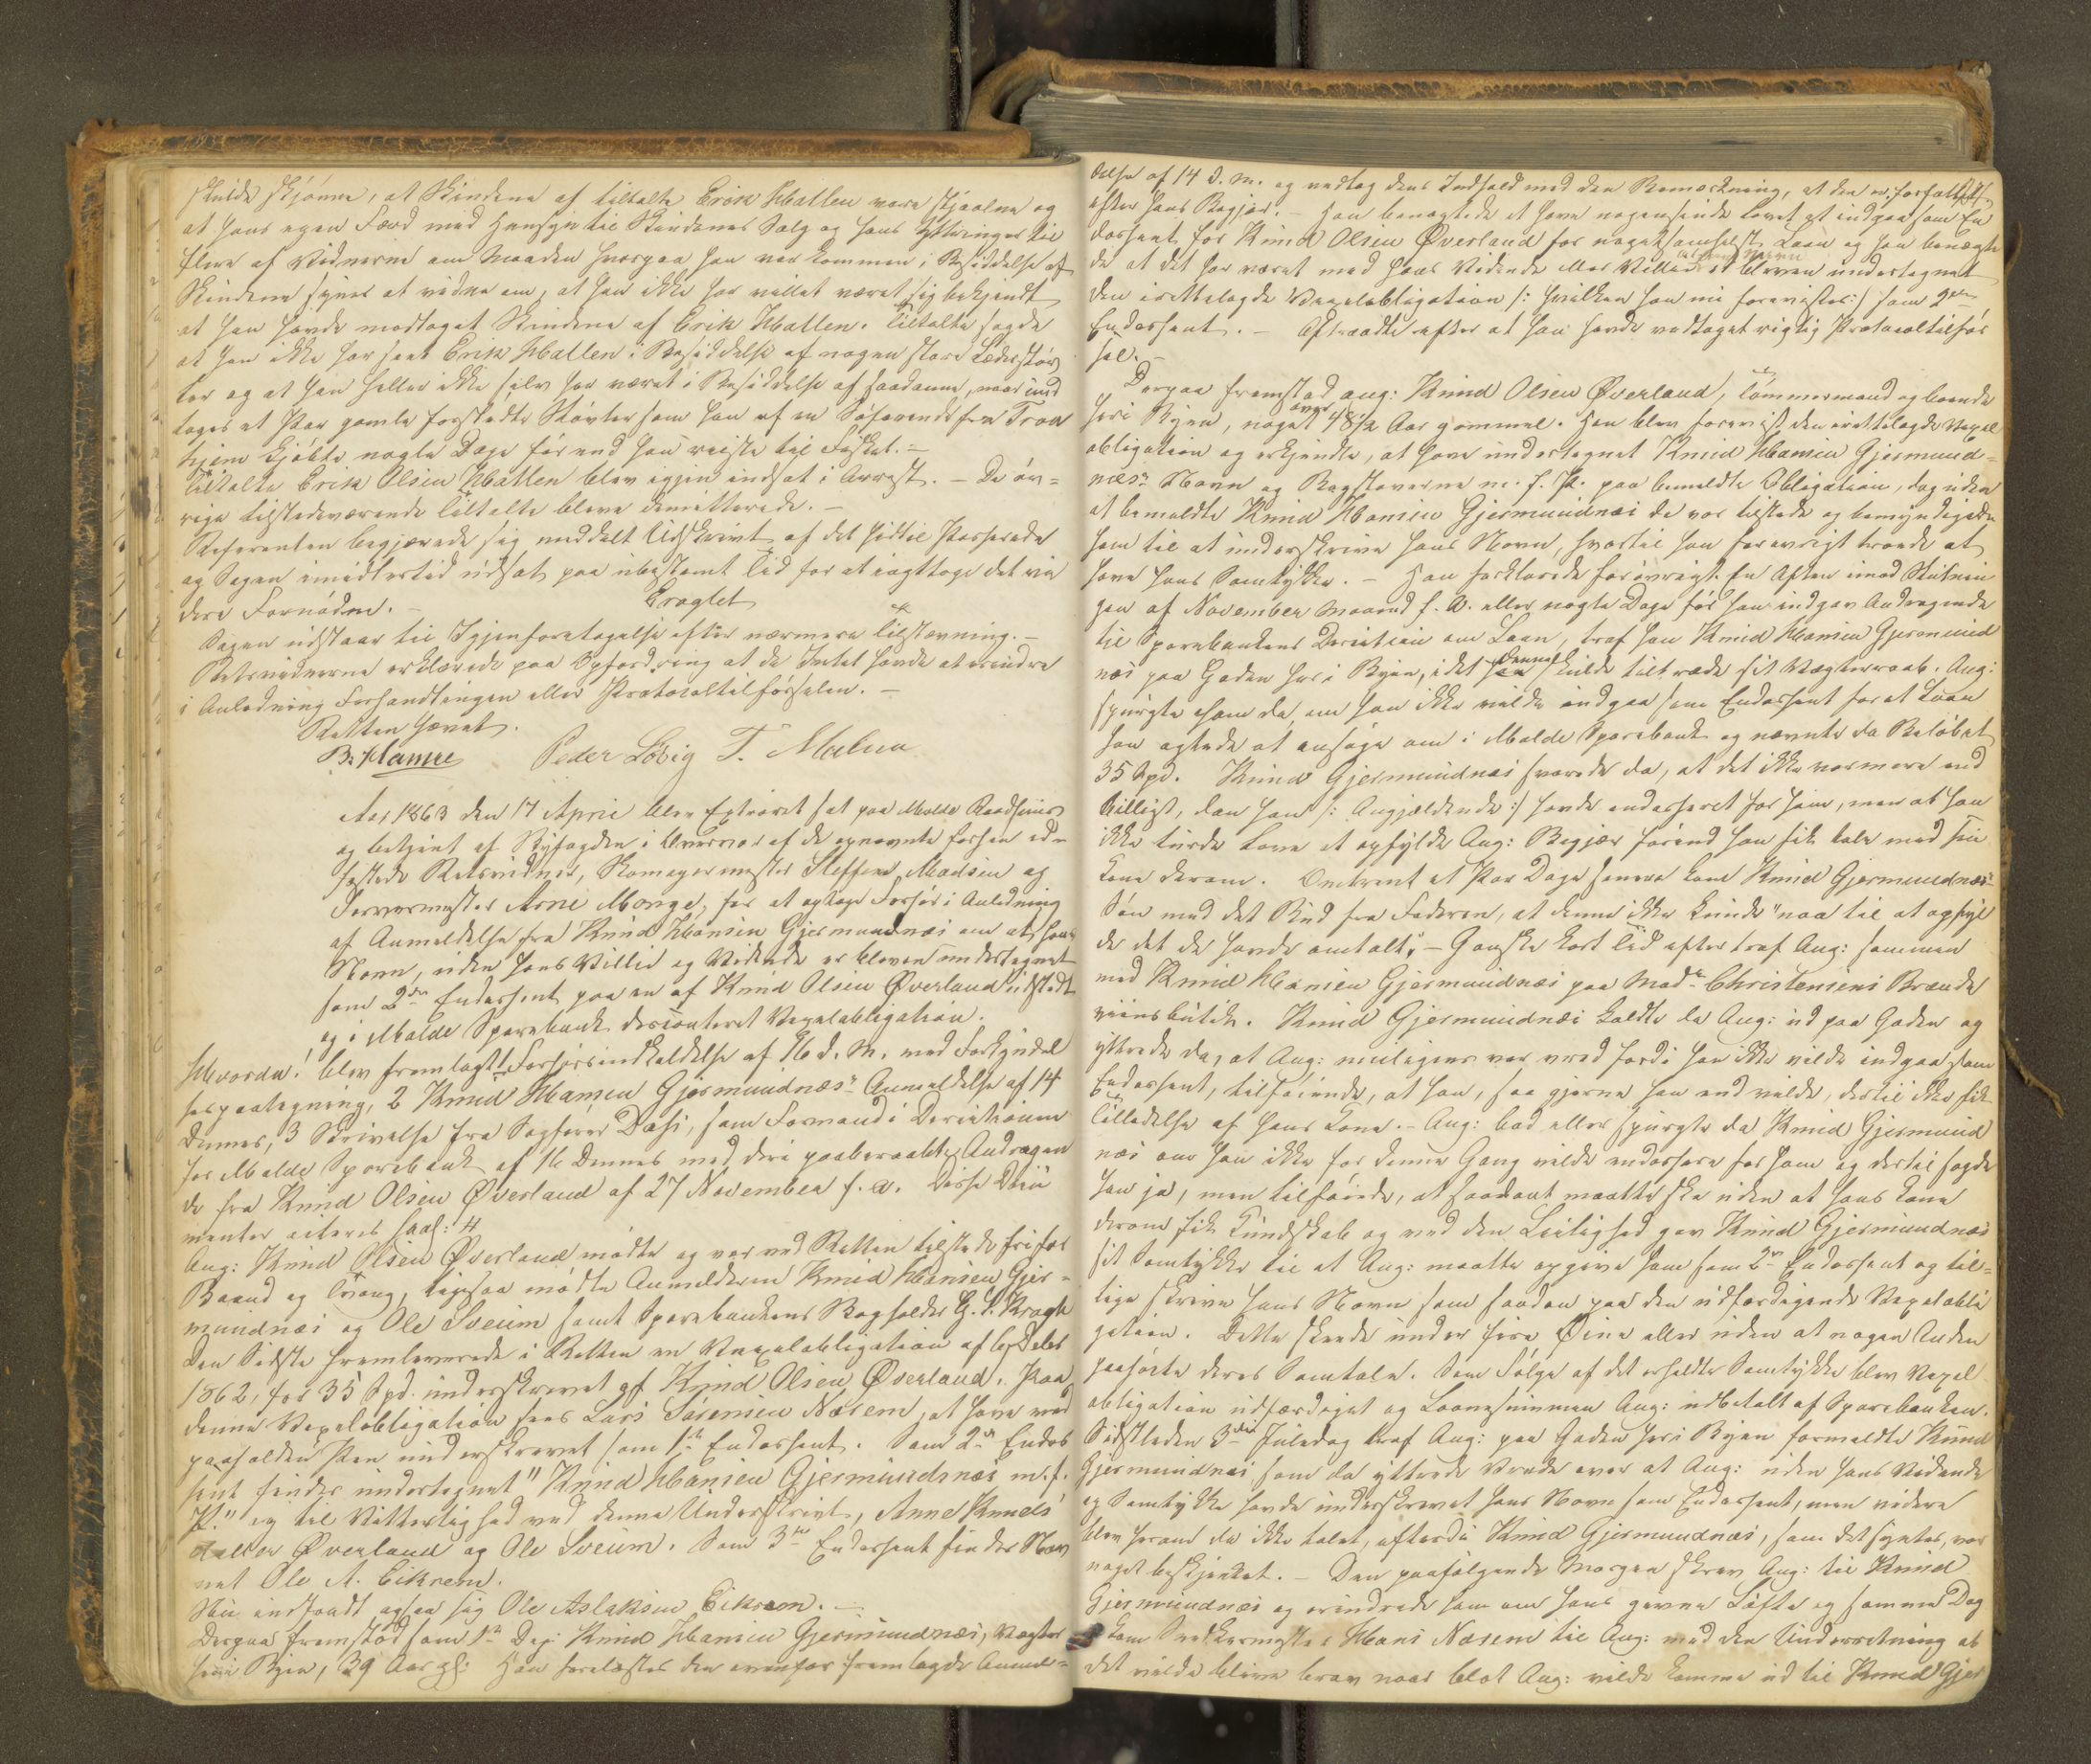 skulde skjønne, at Skindene af tiltalte Erik Hatlen vare stjaalne og
at hans egen Færd med Hensyn til Skindenes Salg og hans Yttringer til
flere af Vidnerne om Maaden hvorpaa han var kommen i Besiddelse af
Skindene synes at vidne om, at han ikke har villet været sig bekjendt
at han havde modtaget Skindene af Erik Hatlen. Tiltalte sagde
at han ikke har seet Erik Hatlen i Besiddelse af nogen store Læderstøv
ler og at han heller ikke selv har været i Besiddelse af saadanne, naar und
tages et Par gamle forslidte Støvler som han af en Søfarende fra Tron
hjem kjøbte nogle Dage førend han reiste til Fisket. –
Tiltalte Erik Olsen Hatlen blev igjen indsat i Arrest. – De øv=
rige tilstedeværende Tiltalte bleve demitterede. –
Referenten begjærede sig meddelt Udskrivt af det hidtil Passerede
og Sagen imidlertid udsat paa ubestemt Tid for at iagttage det vi
dere Fornødne. –
Eragtet
Sagen udstaar til Igjenforetagelse efter nærmere Tilstævning. –
Retsvidnerne erklærede paa Opfordring at de Intet havde at erindre
i Anledning Forhandlingen eller Protocoltilførselen. –
Retten hævet.
B. Hamre Peder Løvig T. Malsen
Aar 1863 den 17 April blev Extraret sat paa Molde Raadhuus
og betjent af Byfogden i Overvær af de opnævnte forhen ed=
fæstede Retsvidner, Skomagermester Steffen Madsen og
Farvermester Arne Monge, for at optage Forhør i Anledning
af Anmeldelse fra Knud Hansen Gjermundnæs om at hans
Navn, uden hans Villie og Vidende er bleven undertegnet
som 2den Endossent paa en af Knud Olsen Øverland udstedt
og i Molde Sparebank disconteret Vexelobligation.
Hvorda: blev fremlagt 1 Forhørsindkaldelse af 16 d. M. med Forkyndel
sespaategning, 2 Knud Hansen Gjermundnæs's Anmeldelse af 14
Dennes, 3 Skrivelse fra Sagfører Dahl, som Formand i Directionen
for Molde Sparebank af 16 Dennes med deri paaberaabte Andragen
de fra Knud Olsen Øverland af 27 November f. A. Disse Docu
menter citeres saal: #
Ang: Knud Olsen Øverland mødte og var ved Retten tilstede fri for
Baand og Tvang, ligesaa mødte Anmelderen Knud Hansen Gjer=
mundnæs og Ole Sveum samt Sparebankens Bogholder G. F. Krogh
Den Sidste fremleverede i Retten en Vexelobligation af 6 Decbr
1862, for 35 Spd. underskrevet af Knud Olsen Øverland. Paa
denne Vexelobligation sees Lars Sørensen Næsem, at have med
paaholden Pen underskrevet som 1ste Endossent. Som 2den Endos
sent findes undertegnet "Knud Hansen Gjermundnæs m. f.
P." og til Vitterlighed ved denne Underskrivt, Anne Knuds
datter Øverland og Ole Sveum. Som 3die Endossent findes Nav
net Ole A. Eikrem.
Nu indfandt ogsaa sig Ole Aslaksen Eikrem. –
Derpaa fremstod som 1ste Dep: Knud Hansen Gjermundnæs, Vægter
her i Byen, 39 Aar gl: Han forelæstes den ovenfor fremlagde Anmel=
delse af 14 d. M. og vedtog dens Indhold med den Bemærkning, at den er forfattet
efter hans Begjær. – Han benægtede at have nogensinde lovet at indgaa som En
dossent for Knud Olsen Øverland for nogetsomhelst Laan og han benægte
de at det har været med hans Vidende eller Villie at hans Navn er bleven undertegnet
den irettelagde Vexelobligation /: hvilken han nu forevistes :/ som 2den
Endossent. – Aftraadte efter at han havde vedtaget rigtig Protocoltilfør
sel. –
Derpaa fremstod Ang: Knud Olsen Øverland, Tømmermand og boende
her i Byen, noget over 48½ Aar gammel. Han blev forevist den irettelagde Vexel
obligation og erkjendte, at have undertegnet Knud Hansen Gjermund=
næs's Navn og Bogstaverne m. f. P. paa bemeldte Obligation, dog uden
at bemeldte Knud Hansen Gjermundnæs da var tilstede og bemyndigede
ham til at underskrive hans Navn, hvortil han forøvrigt troede at
have hans Samtykke. – Han forklarede forøvrigt: En Aften imod Slutnin
gen af November Maaned f. A. eller nogle Dage før han indgav Andragende
til Sparebankens Direction om Laan, traf han Knud Hansen Gjermund
næs paa Gaden her i Byen, idet denne skulde tiltræde sit Vægterraab. Ang:
spurgte ham da, om han ikke vilde indgaa som Endossent for et Laan
han agtede at ansøge om i Molde Sparebank og nævnte da Beløbet
35 Spd. Knud Gjermundnæs svarede da, at det ikke var mere end
billigt, da han /: Angjældende :/ havde endosseret for ham, men at han
ikke turde love at opfylde Ang: Begjær førend han fik tale med sin
Kone derom. Omtrent et Par Dage senere kom Knud Gjermundnæs's
Søn med det Bud fra Faderen, at denne ikke kunde "naa til at opfyl
de det de havde omtalt." – Ganske kort Tid efter traf Ang: sammen
med Knud Hansen Gjermundnæs paa Mad. Christensens Brænde
viinsbutik. Knud Gjermundnæs kaldte da Ang: ud paa Gaden og
yttrede da, at Ang: muligens var vred fordi han ikke vilde indgaa som
Endossent, tilføiende, at han, saa gjerne han end vilde, dertil ikke fik
Tilladelse af hans Kone. – Ang: bad eller spurgte da Knud Gjermund
næs om han ikke for denne Gang vilde endossere for ham og dertil sagde
han ja, men tilføiede, at saadant maatte ske uden at hans Kone
derom fik Kundskab og ved den Leilighed gav Knud Gjermundnæs
sit Samtykke til at Ang: maatte opgive ham som 2den Endossent og til=
lige skrive hans Navn som saadan paa den udfærdigende Vexelobli
gation. Dette skeede under fire Øine eller uden at nogen Anden
paahørte deres Samtale. Som Følge af det erholdte Samtykke blev Vexel
obligation udfærdiget og Laanesummen Ang: udbetalt af Sparebanken.
Sidstleden 3die Juledag traf Ang: paa Gaden her i Byen formeldte Knud
Gjermundnæs som da yttrede Vrede over at Ang: uden hans Vidende
og Samtykke havde underskrevet hans Navn som Endossent, men videre
blev herom da ikke talet, efterdi Knud Gjermundnæs, som det syntes, var
noget beskjænket. – Den paafølgende Morgen skrev Ang: til Knud
Gjermundnæs og erindrede ham om hans givne Løfte og samme Dag
kom Snedkermester Hans Næsem til Ang: med den Underretning at
det vilde blive brav naar blot Ang: vilde komme ud til Knud Gjer